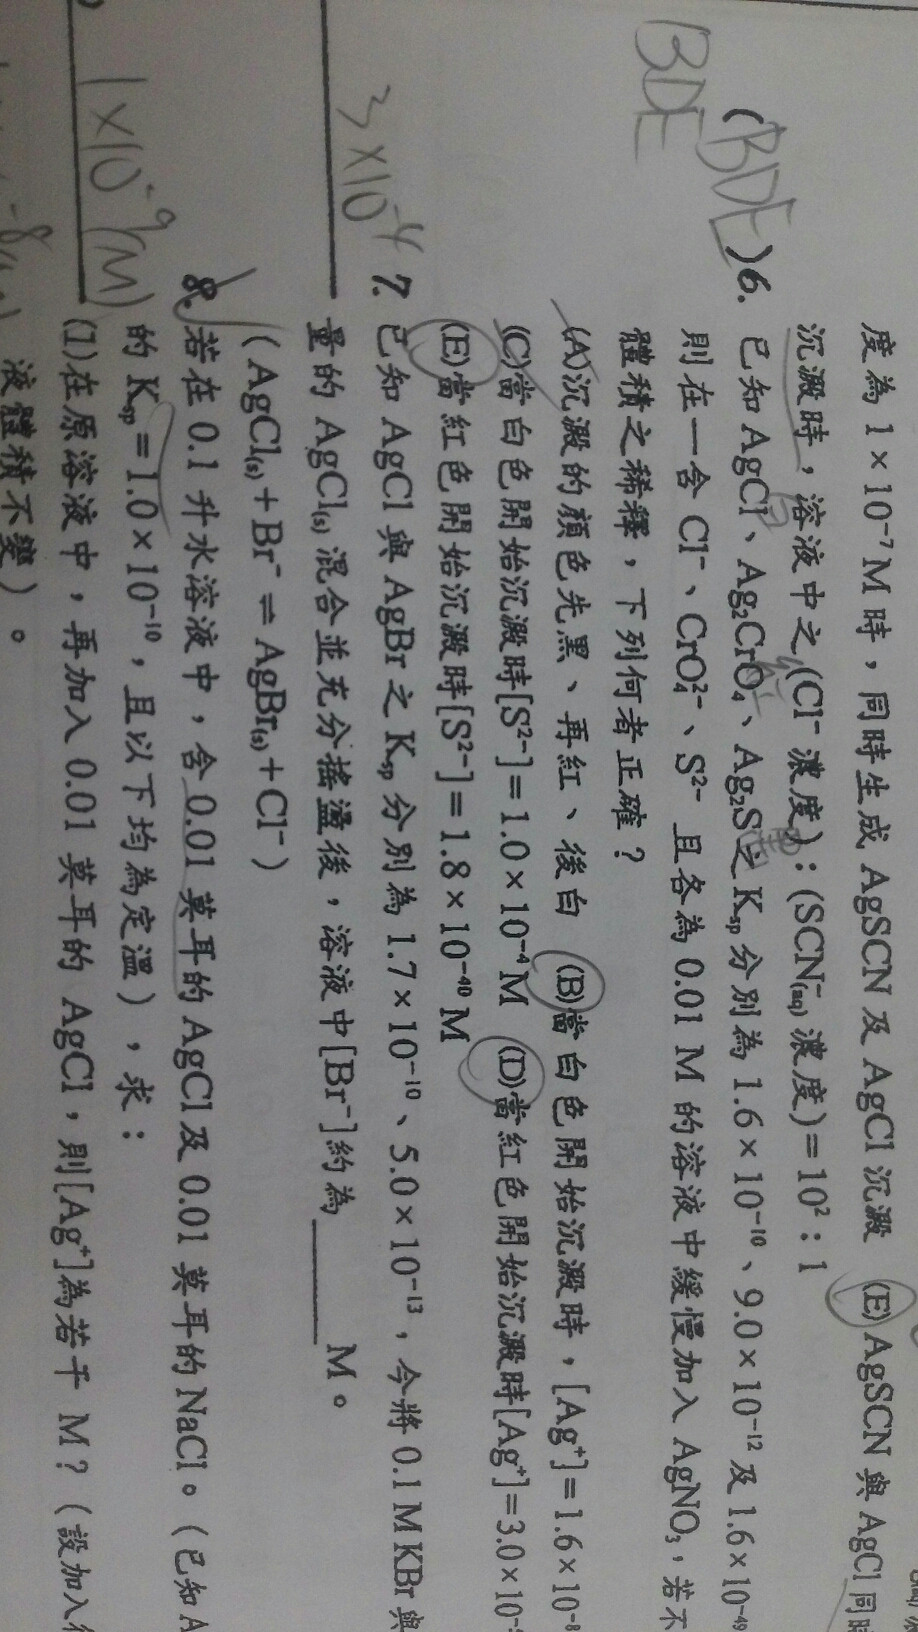 度為 1×10⁻⁷ M 時，同時生成 AgSCN 及 AgCl 沉澱 (E) AgSCN 與 AgCl 同時
沉澱時，溶液中之(Cl⁻濃度)：(SCN⁻(aq) 濃度)=10²：1
(BDE)6. 已知 AgCl、Ag₂CrO₄、Ag₂S 之 Ksp 分別為 1.6×10⁻¹⁰、9.0×10⁻¹² 及 1.6×10⁻⁴⁹
BDE
則在一含 Cl⁻、CrO₄²⁻、S²⁻ 且各為 0.01 M 的溶液中緩慢加入 AgNO₃，若不
體積之稀釋，下列何者正確？
(A)沉澱的顏色先黑、再紅、後白 (B)當白色開始沉澱時，[Ag⁺]=1.6×10⁻⁸
(C)當白色開始沉澱時[S²⁻]=1.0×10⁻⁴M (D)當紅色開始沉澱時[Ag⁺]=3.0×10⁻⁵
(E)當紅色開始沉澱時[S²⁻]=1.8×10⁻⁴⁰M
3×10⁻⁴ 7. 已知 AgCl 與 AgBr 之 Ksp 分別為 1.7×10⁻¹⁰、5.0×10⁻¹³，今將 0.1 M KBr 與
量的 AgCl(s) 混合並充分搖盪後，溶液中[Br⁻]約為 ______ M。
(AgCl(s)+Br⁻⇌AgBr(s)+Cl⁻)
8. 若在 0.1 升水溶液中，含 0.01 莫耳的 AgCl 及 0.01 莫耳的 NaCl。(已知 A
的 Ksp=1.0×10⁻¹⁰，且以下均為定溫)，求：
1×10⁻⁹(M) (1)在原溶液中，再加入 0.01 莫耳的 AgCl，則[Ag⁺]為若干 M？(設加入
液體積不變)。